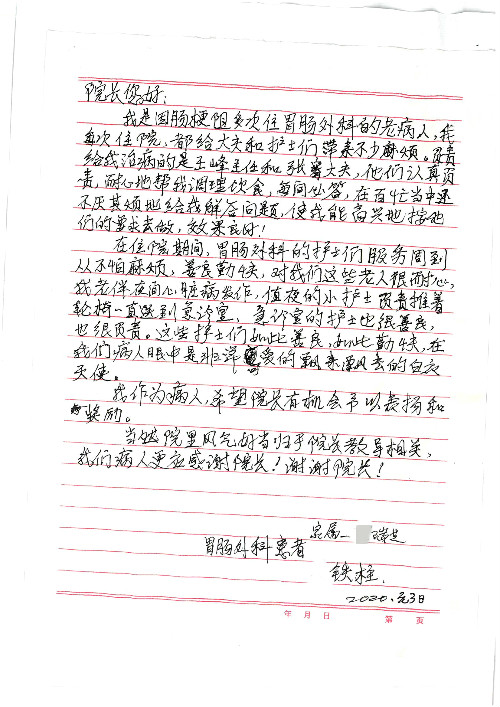 院长您好:
我是因肠梗阻多次住胃肠外科的老病人,我
每次住院,都给大夫和护士们带来不少麻烦。负责
给我治病的是王峰主任和张 大夫,他们认真负
责,耐心地帮我调理饮食,每问必答,在百忙当中还
不厌其烦地给我解答问题,使我能高兴地按他
们的要求去做,效果良好!
在住院期间,胃肠外科的护士们服务周到
从不怕麻烦,善良勤快,对我们这些老人很耐心,
我老伴夜间心脏病发作,值夜的小护士负责推着
轮椅一直送到急诊室,急诊室的护士也很善良,
也很负责。这些护士们如此善良,如此勤快,在
我们病人眼中是非常 爱的飘来飘去的白衣
天使。
我作为病人,希望院长有机会予以表扬和
奖励。
当然院里风气好当归于院长教导相关,
我们病人更应感谢院长!谢谢院长!
家属
胃肠外科患者
铁柱.
2020.元3日
年 月 日 第 页